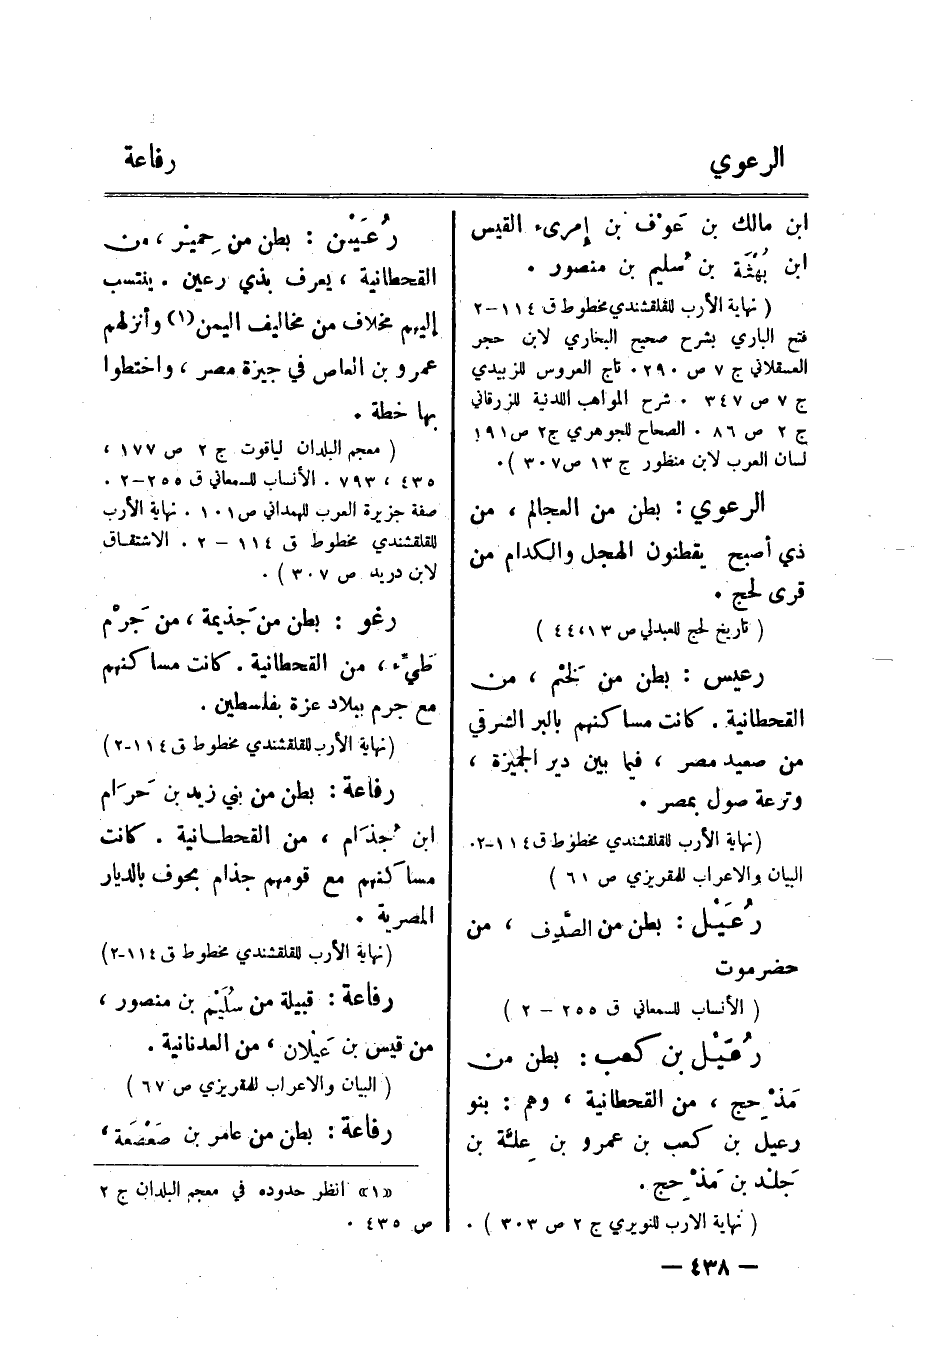 الرعوي
رفاعة
ابن مالك بن عَوْف بن إمرىء القيس
ابن بُهْثَة بن سُليم بن منصور .
( نهاية الأرب للقلقشندي مخطوط ق ١١٤-٢
فتح الباري بشرح صحيح البخاري لابن حجر
العسقلاني ج ٧ ص ٢٩٠. تاج العروس للزبيدي
ج ٧ ص ٣٤٧ . شرح المواهب اللدنية للزرقاني
ج ٢ ص ٨٦ . الصحاح للجوهري ج٢ ص١٩١
لسان العرب لابن منظور ج ١٣ ص٣٠٧ ).
الرعوي : بطن من العجالم ، من
ذي أصبح يقطنون الهجل والكدام من
قرى لحج .
( تاريخ لحج للعبدلي ص ١٣،٤٤ )
رعيس : بطن من لَخْم ، من
القحطانية . كانت مساكنهم بالبر الشرقي
من صعيد مصر ، فيما بين دير الجميزة ،
وترعة صول بمصر .
(نهاية الأرب للقلقشندي مخطوط ق١١٤-٢.
البيان والاعراب للمقريزي ص ٦١ )
رُعَيْل : بطن من الصَّدِف ، من
حضرموت
( الأنساب للسمعاني ق ٢٥٥ – ٢ )
رُعَيْل بن كعب : بطن من
مَذْحِج ، من القحطانية ، وهم : بنو
رعيل بن كعب بن عمرو بن عِلَة بن
جَلْد بن مَذْحِج .
( نهاية الارب للنويري ج ٢ ص ٣٠٣ ) .
رُعَيْن : بطن من حِميْر ، من
القحطانية ، يعرف بذي رعين . ينتسب
إليهم مخلاف من مخاليف اليمن(١) وأنزلهم
عمرو بن العاص في جيزة مصر ، واختطوا
بها خطة .
( معجم البلدان لياقوت ج ٢ ص ١٧٧ ،
٤٣٥ ، ٧٩٣ . الأنساب للسمعاني ق ٢٥٥-٢ .
صفة جزيرة العرب للهمداني ص١٠١ . نهاية الأرب
للقلقشندي مخطوط ق ١١٤ – ٢ . الاشتقاق
لابن دريد ص ٣٠٧ ) .
رغو : بطن من جَذيمة ، من جَرْم
طَيّء ، من القحطانية . كانت مساكنهم
مع جرم ببلاد غزة بفلسطين .
(نهاية الأرب للقلقشندي مخطوط ق١١٤-٢)
رفاعة : بطن من بني زيد بن حَرَام
ابن جُذَام ، من القحطانية . كانت
مساكنهم مع قومهم جذام بحوف بالديار
المصرية .
(نهاية الأرب للقلقشندي مخطوط ق ١١٤-٢)
رفاعة : قبيلة من سُلَيْم بن منصور ،
من قيس بن عَيْلان ، من العدنانية .
( البيان والاعراب للمقريزي ص ٦٧ )
رفاعة : بطن من عامر بن صَعْصَعَة ،
«١» انظر حدوده في معجم البلدان ج ٢
ص ٤٣٥ .
— ٤٣٨ —